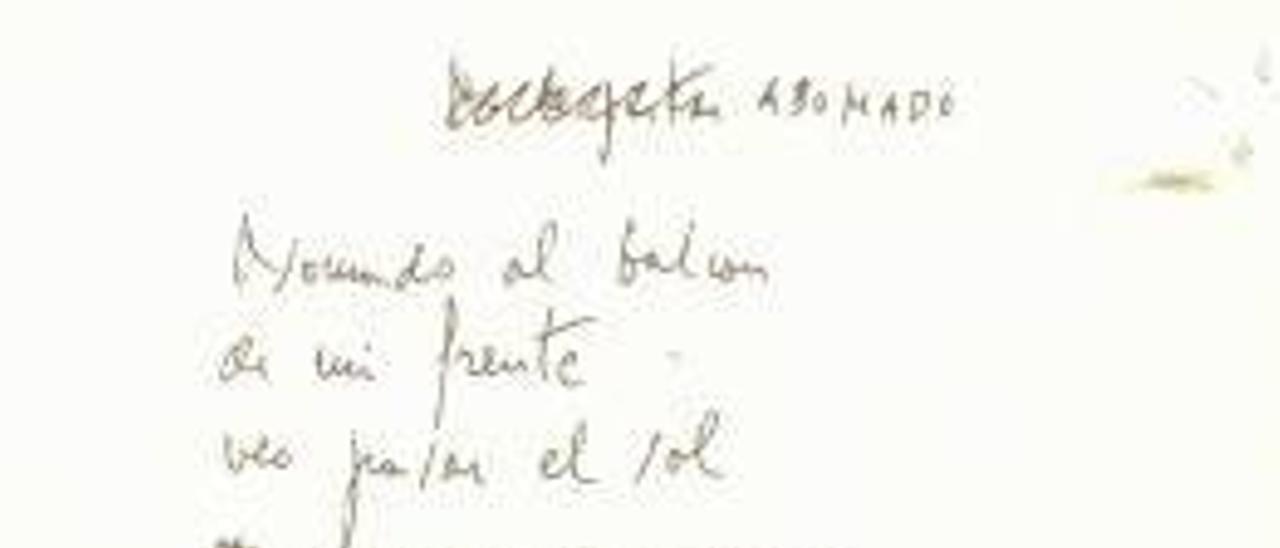 ASOMADO
Asomado al balcon
de mi frente
veo pasar el sol